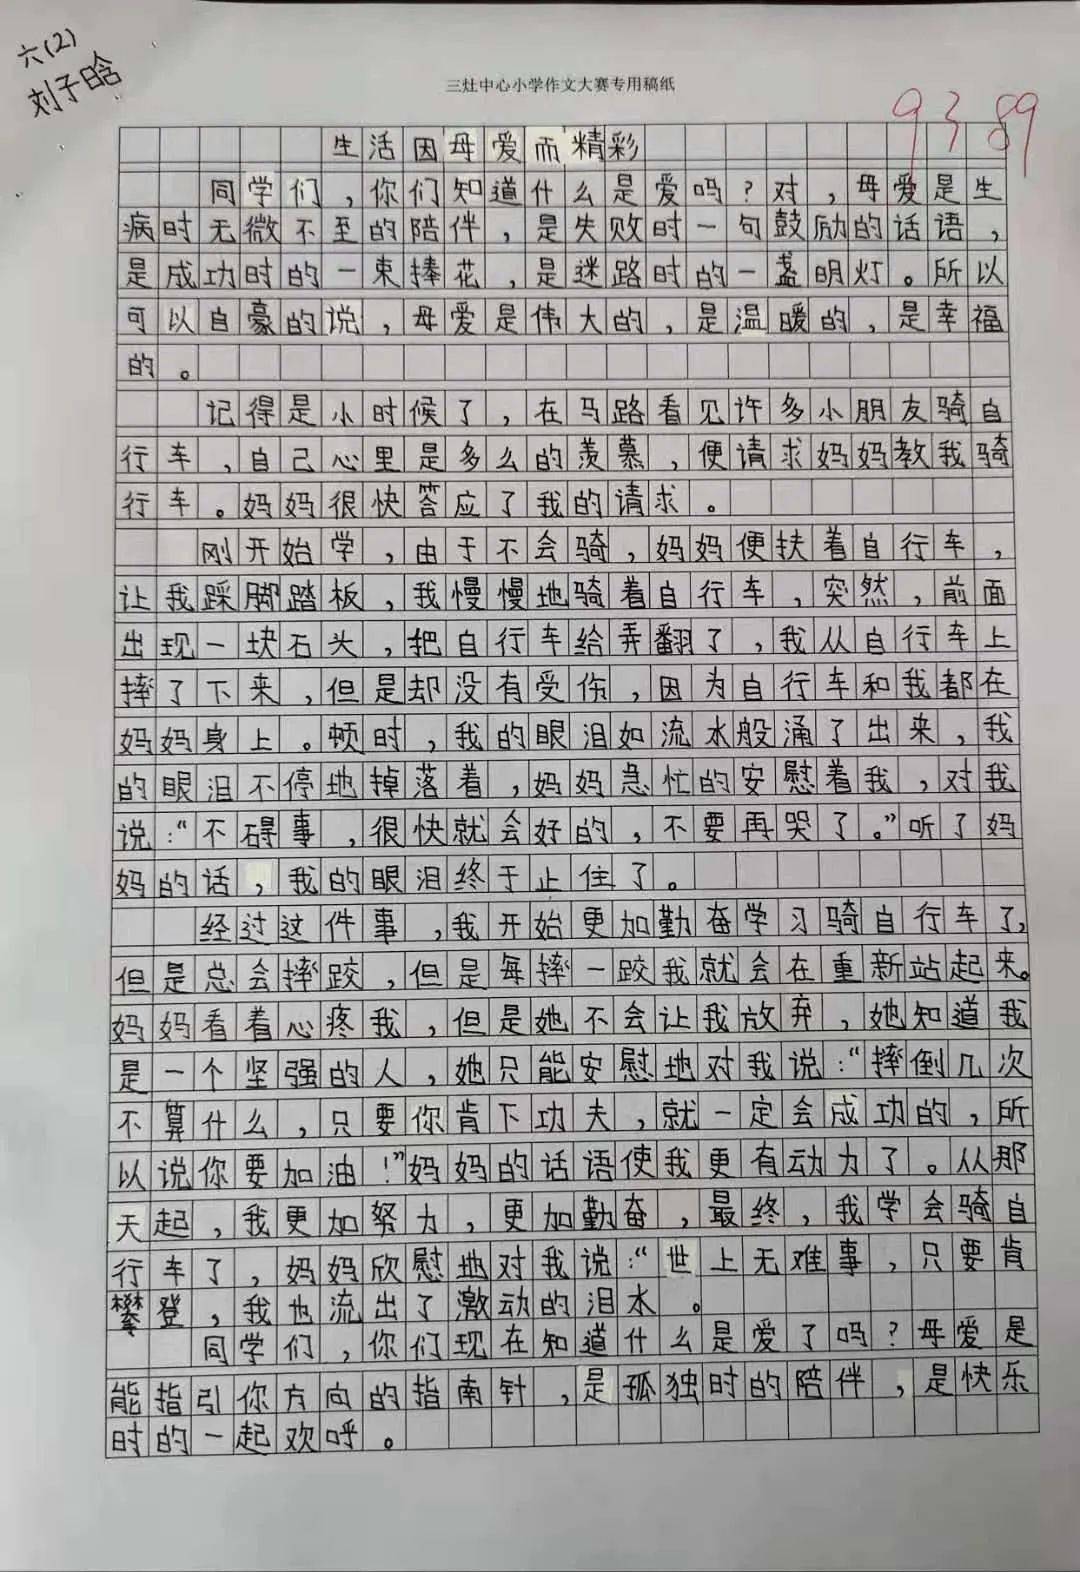 六(2)
刘子晗
三灶中心小学作文大赛专用稿纸
93 89
生活因母爱而精彩
同学们，你们知道什么是爱吗？对，母爱是生
病时无微不至的陪伴，是失败时一句鼓励的话语，
是成功时的一束捧花，是迷路时的一盏明灯。所以
可以自豪的说，母爱是伟大的，是温暖的，是幸福
的。
记得是小时候了，在马路看见许多小朋友骑自
行车，自己心里是多么的羡慕，便请求妈妈教我骑
行车。妈妈很快答应了我的请求。
刚开始学，由于不会骑，妈妈便扶着自行车，
让我踩脚踏板，我慢慢地骑着自行车，突然，前面
出现一块石头，把自行车给弄翻了，我从自行车上
摔了下来，但是却没有受伤，因为自行车和我都在
妈妈身上。顿时，我的眼泪如流水般涌了出来，我
的眼泪不停地掉落着，妈妈急忙的安慰着我，对我
说：“不碍事，很快就会好的，不要再哭了。”听了妈
妈的话，我的眼泪终于止住了。
经过这件事，我开始更加勤奋学习骑自行车了，
但是总会摔跤，但是每摔一跤我就会在重新站起来。
妈妈看着心疼我，但是她不会让我放弃，她知道我
是一个坚强的人，她只能安慰地对我说：“摔倒几次
不算什么，只要你肯下功夫，就一定会成功的，所
以说你要加油！”妈妈的话语使我更有动力了。从那
天起，我更加努力，更加勤奋，最终，我学会骑自
行车了，妈妈欣慰地对我说：“世上无难事，只要肯
攀登，我也流出了激动的泪水。
同学们，你们现在知道什么是爱了吗？母爱是
能指引你方向的指南针，是孤独时的陪伴，是快乐
时的一起欢呼。